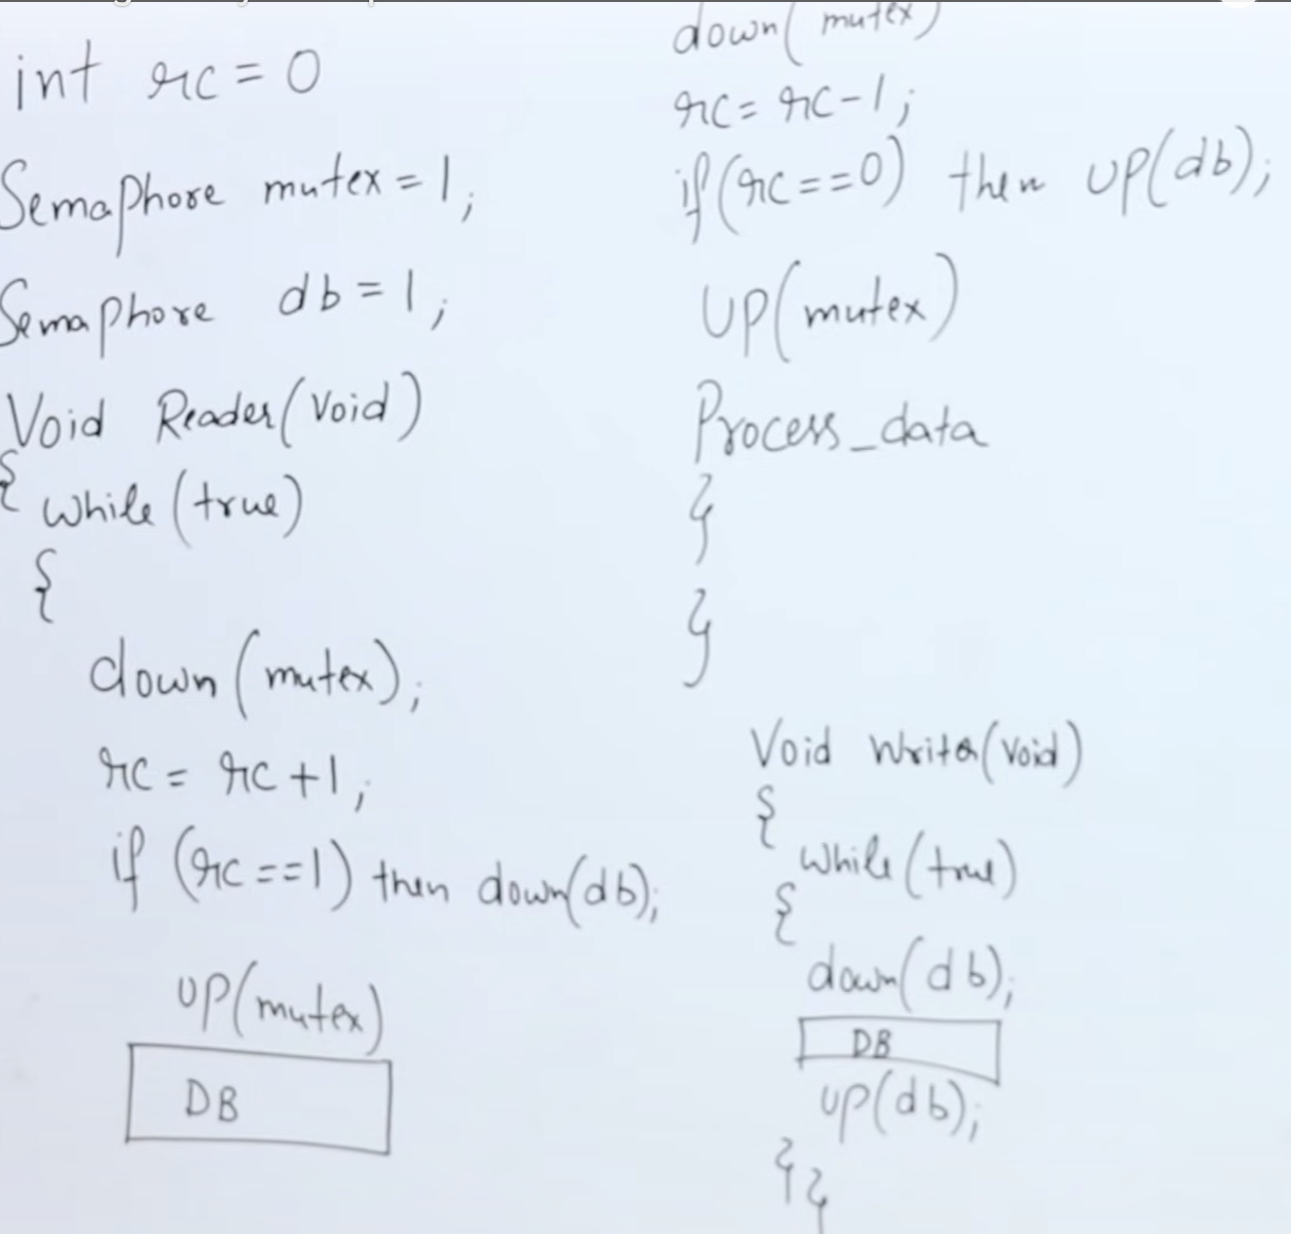 int rc = 0
Semaphore mutex = 1;
Semaphore db = 1;
Void Reader(void)
{ while (true)
{
down (mutex);
rc = rc + 1;
if (rc == 1) then down(db);
UP(mutex)
DB
down( mutex)
rc = rc - 1;
if (rc == 0) then UP(db);
UP(mutex)
Process_data
}
}
Void Writer(void)
{
while (true)
{
down(db);
DB
UP(db);
} }